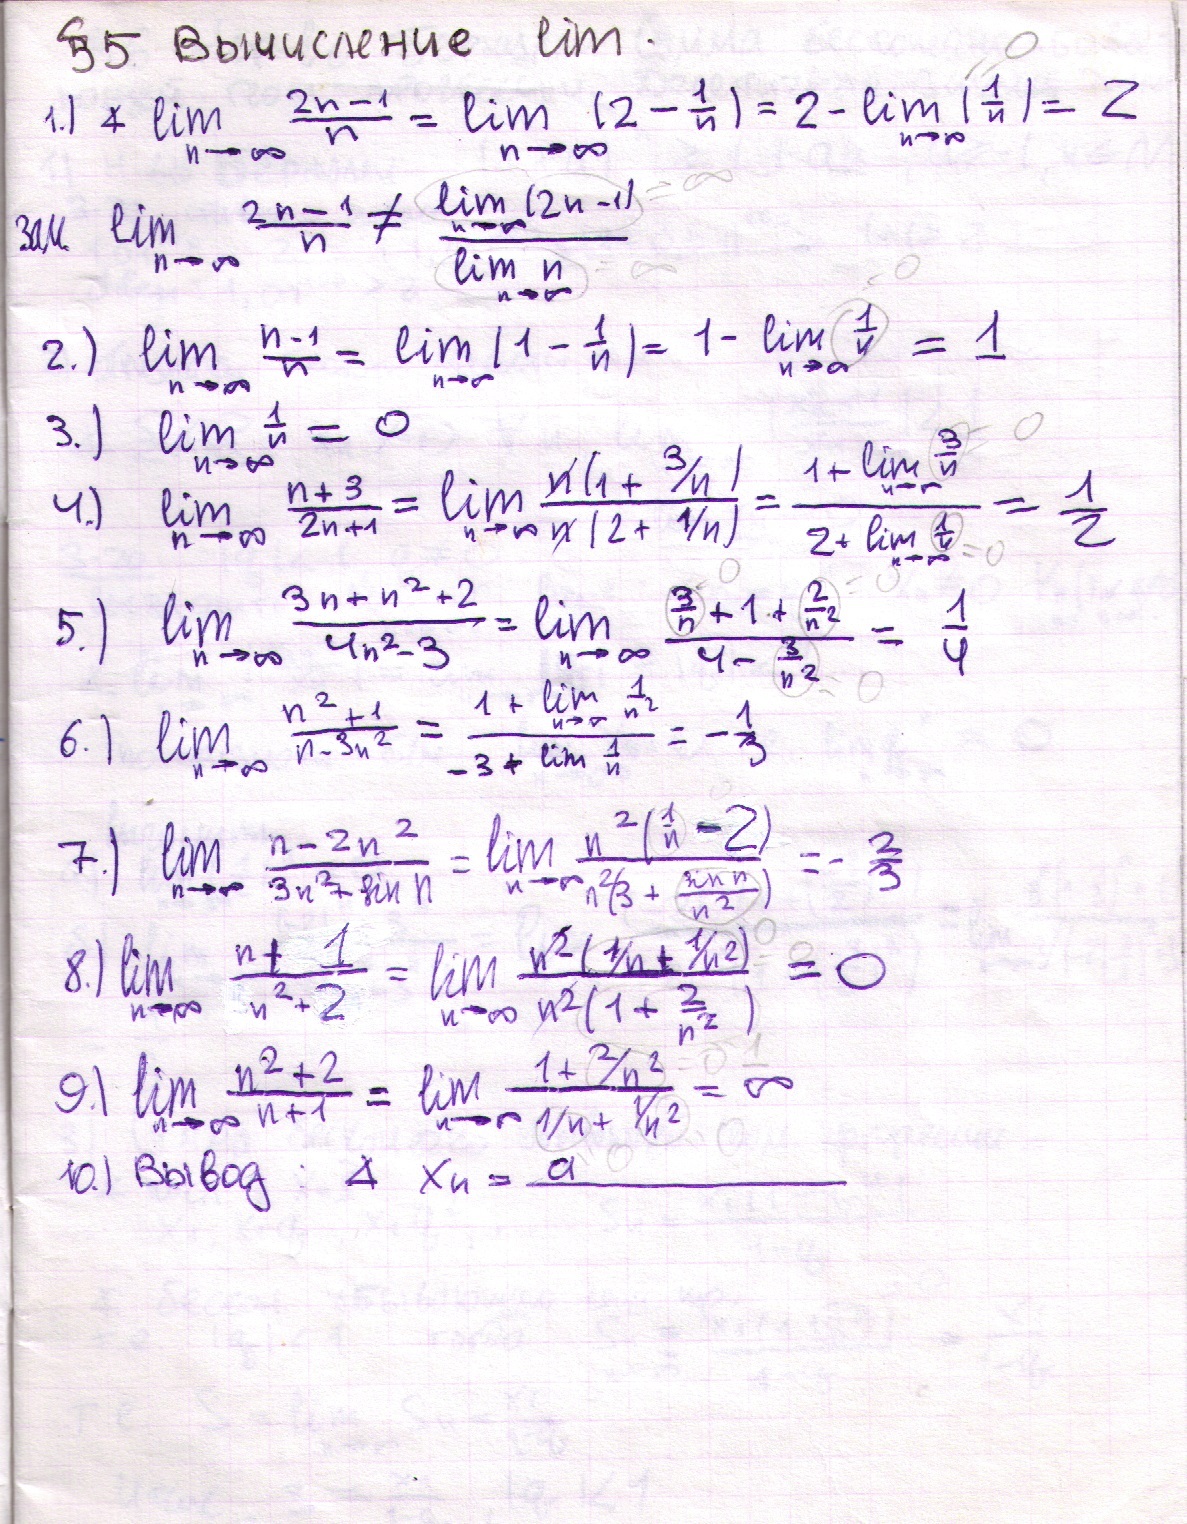 §5 Вычисление lim.
1.) ∡ lim n→∞ (2n-1)/n = lim n→∞ (2 - 1/n) = 2 - lim n→∞ (1/n) = 2 → 0
зам. lim n→∞ (2n-1)/n ≠ (lim n→∞ (2n-1))/(lim n→∞ n) = ∞ = ∞
2.) lim n→∞ (n-1)/n = lim n→∞ (1 - 1/n) = 1 - lim n→∞ 1/n = 1 = 0
3.) lim n→∞ 1/n = 0
4.) lim n→∞ (n+3)/(2n+1) = lim n→∞ n(1 + 3/n)/n(2 + 1/n) = (1 + lim n→∞ 3/n)/(2 + lim n→∞ 1/n) = 1/2 = 0 = 0
5.) lim n→∞ (3n+n²+2)/(4n²-3) = lim n→∞ (3/n + 1 + 2/n²)/(4 - 3/n²) = 1/4 = 0 = 0 = 0
6.) lim n→∞ (n²+1)/(n-3n²) = (1 + lim n→∞ 1/n²)/(-3 + lim 1/n) = -1/3
7.) lim n→∞ (n-2n²)/(3n²+sin n) = lim n→∞ n²(1/n - 2)/n²(3 + sin n/n²) = -2/3 = 0
8.) lim n→∞ (n+1)/(n²+2) = lim n→∞ n²(1/n + 1/n²)/n²(1 + 2/n²) = 0
9.) lim n→∞ (n²+2)/(n+1) = lim n→∞ (1 + 2/n²)/(1/n + 1/n²) = ∞ = 0 = 0
10.) Вывод: ∡ xn = a